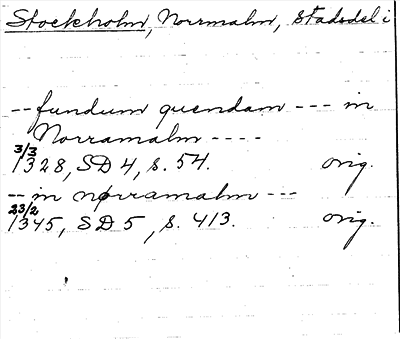 Stockholm, Norrmalm, stadsdel i
-- fundum quendam --- in
Norramalm ----
3/3
1328, SD 4, s. 54. orig.
-- in norramalm ---
23/2
1345, SD 5, s. 413. orig.